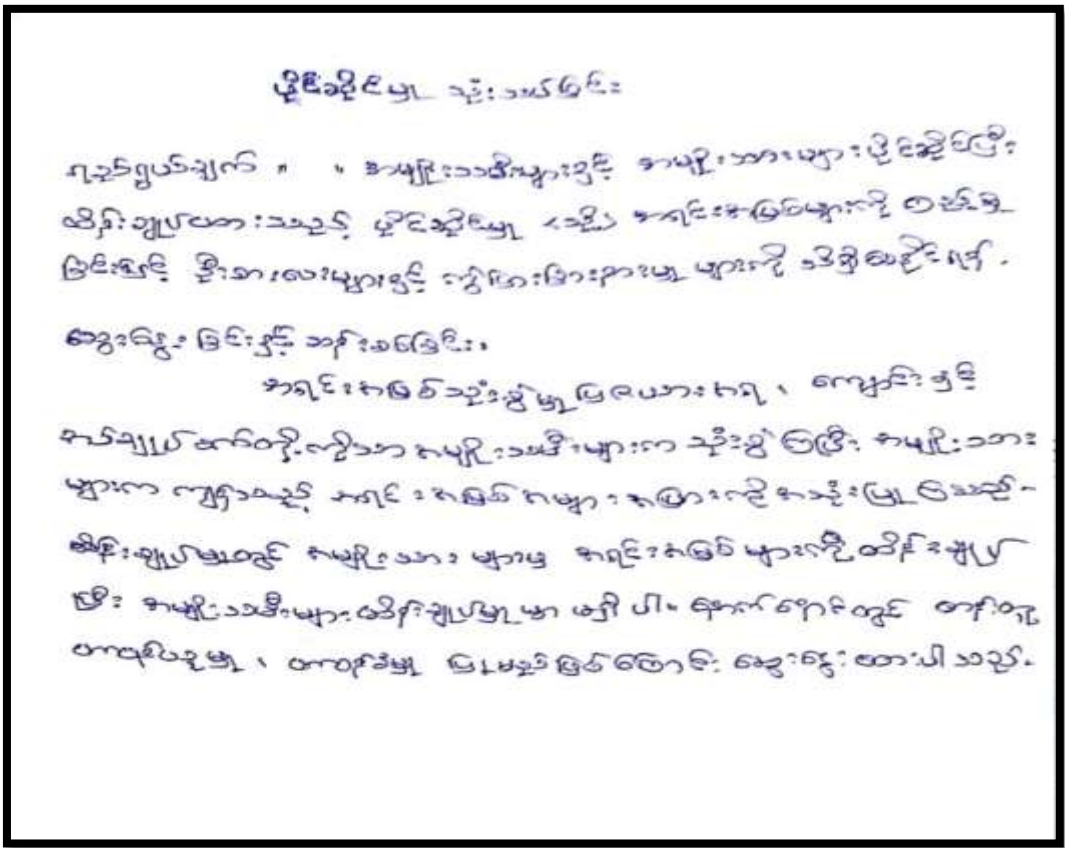 ပိုင်ဆိုင်မှု သုံးသပ်ခြင်း
ရည်ရွယ်ချက် ။ ။ အမျိုးသမီးများနှင့် အမျိုးသားများပိုင်ဆိုင်ပြီး
ထိန်းချုပ်ထားသည့် ပိုင်ဆိုင်မှု <သို့> အရင်းအမြစ်များကို
ခြင်းဖြင့် ဦးစားပေးများနှင့် ကွဲပြားခြားနားမှု များကို သိရှိစေနိုင်ရန်.
ဆွေးနွေး ခြင်းနှင့် သန်းစစ်ခြင်း၊
အရင်းအမြစ်သုံးစွဲမှု ပြဇယားအရ ၊ ကျောင်းနှင့်
အမျိုးသမီးများက သုံးစွဲကြပြီး အမျိုးသား
များက ကျန်သည့် အရင်းအမြစ်အများအပြားကို အသုံးပြုကြသည်.
ထိန်းချုပ်မှုတွင် အမျိုးသားများမှ အရင်းအမြစ်များကို ထိန်းချုပ်
ပြီး အမျိုးသမီးများထိန်းချုပ်မှု မှာ မရှိပါ။ နောက်နှောင်တွင် တန်းတူ
တာဝန်ယူမှု ၊ တာဝန်ခံမှု ပြုမည်ဖြစ်ကြောင်း ဆွေးနွေးထားပါသည်.